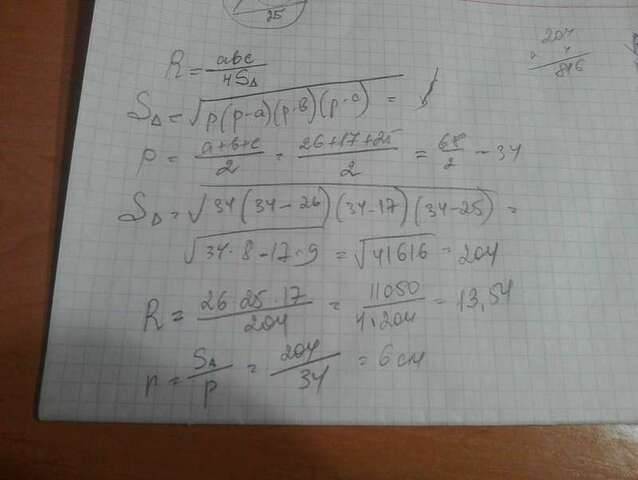 25
204
4
816
R = abc / 4S△
S△ = √p(p-a)(p-b)(p-c) =
p = a+b+c / 2 = 26+17+25 / 2 = 68 / 2 - 34
S△ = √34(34-26)(34-17)(34-25) =
√34·8-17·9 = √41616 = 204
R = 26·25·17 / 204 = 11050 / 4·204 = 13,54
r = S△ / p = 204 / 34 = 6 см